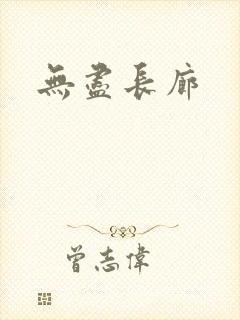 無盡長廊
曾志偉